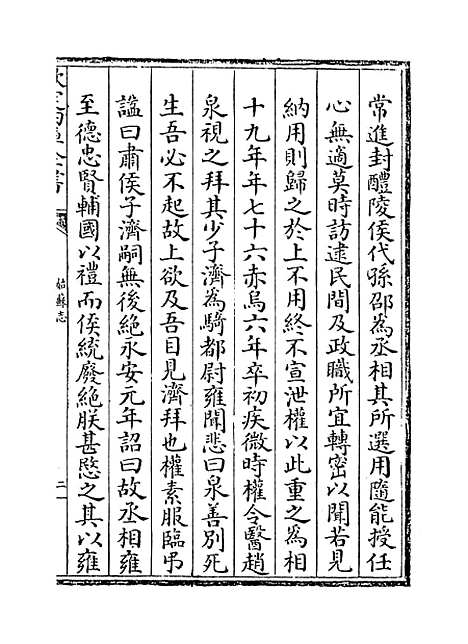 常進封醴陵侯代孫邵為丞相其所選用隨能授任
心無適莫時訪逮民間及政職所宜轉密以聞若見
納用則歸之於上不用終不宣泄權以此重之為相
十九年年七十六赤烏六年卒初疾微時權令醫趙
泉視之拜其少子濟為騎都尉雍聞悲曰泉善別死
生吾必不起故上欲及吾目見濟拜也權素服臨弔
諡曰肅侯子濟嗣無後絶永安元年詔曰故丞相雍
至德忠賢輔國以禮而侯統廢絶朕甚愍之其以雍
姑蘇志